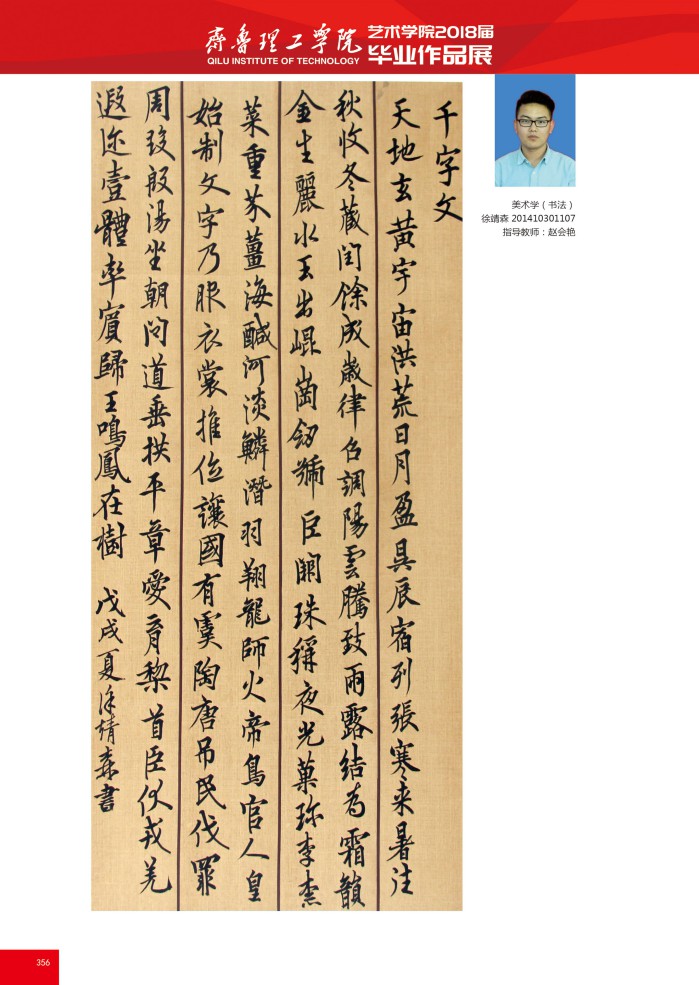 齊魯理工學院
QILU INSTITUTE OF TECHNOLOGY
艺术学院2018届
毕业作品展
美术学（书法）
徐靖森 201410301107
指导教师：赵会艳
千字文
天地玄黄宇宙洪荒日月盈昃辰宿列張寒来暑往
秋收冬藏閏餘成歲律召調陽雲騰致雨露結為霜韻
金生麗水玉出崐崗劒號臣闕珠稱夜光菓珍李柰
菜重芥薑海鹹河淡鱗潛羽翔龍師火帝鳥官人皇
始制文字乃服衣裳推位讓國有虞陶唐吊民伐罪
周發殷湯坐朝問道垂拱平章愛育黎首臣伏戎羌
遐迩壹體率賓歸王鳴鳳在樹 戊戌夏徐靖森書
356